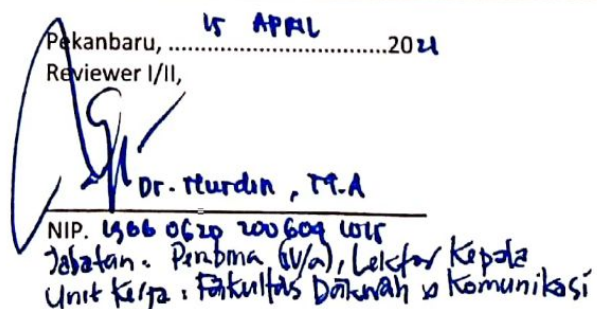 Pekanbaru, 15 APRIL 2021
Reviewer I/II,
Dr. Nurdin, M.A
NIP. 1966 0620 200604 1015
Jabatan: Pembina (IV/a), Lektor Kepala
Unit Kerja: Fakultas Dakwah & Komunikasi